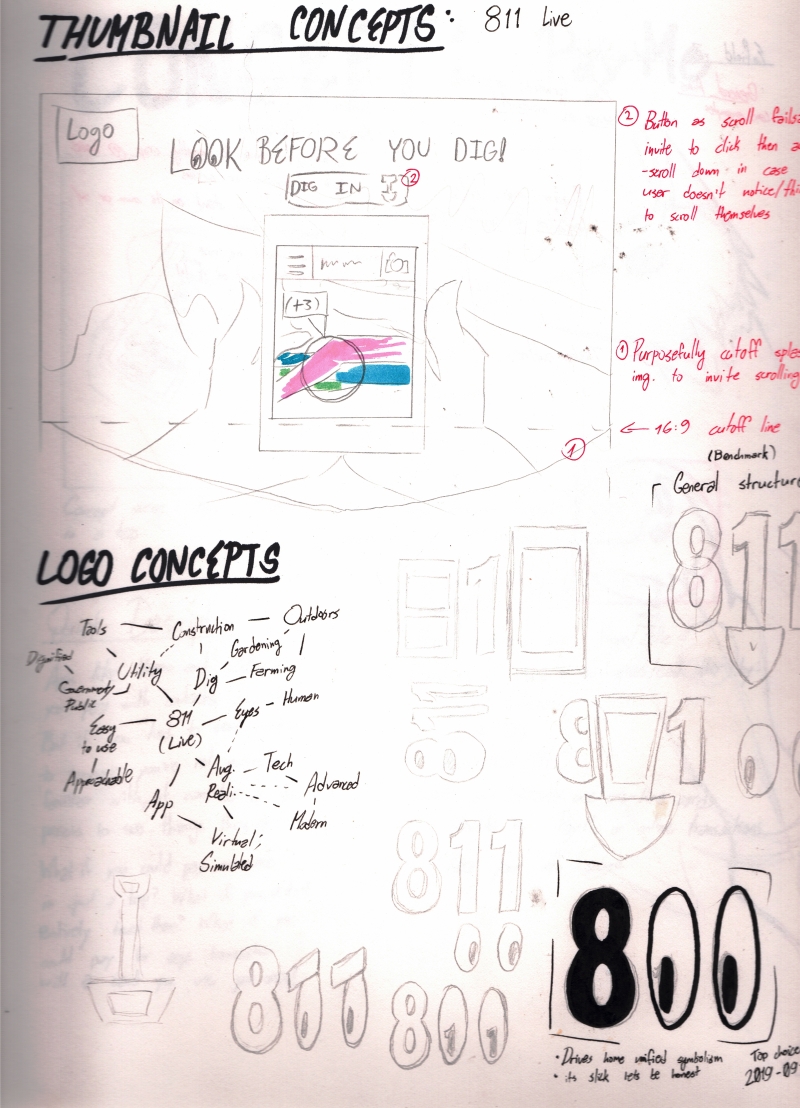 THUMBNAIL CONCEPTS: 811 Live
Logo
LOOK BEFORE YOU DIG!
DIG IN
2
(+3)
2 Button as scroll
invite to click then
-scroll down in case
user doesn't
to scroll themselves
1 Purposefully cutoff
img. to invite scrolling
← 16:9 cutoff line
(Benchmark)
1
General structure
811
LOGO CONCEPTS
Tools
Construction
Outdoors
Gardening
Dignified
Utility
Dig
Farming
Public
Eyes
Human
811
(Live)
Easy
to use
Approachable
App
Aug.
Reali.
Tech
Advanced
Modern
Virtual;
Simulated
811
811
81
811
811
811
8
• Drives home unified symbolism
• its slick lets be honest
Top choice
2019-09